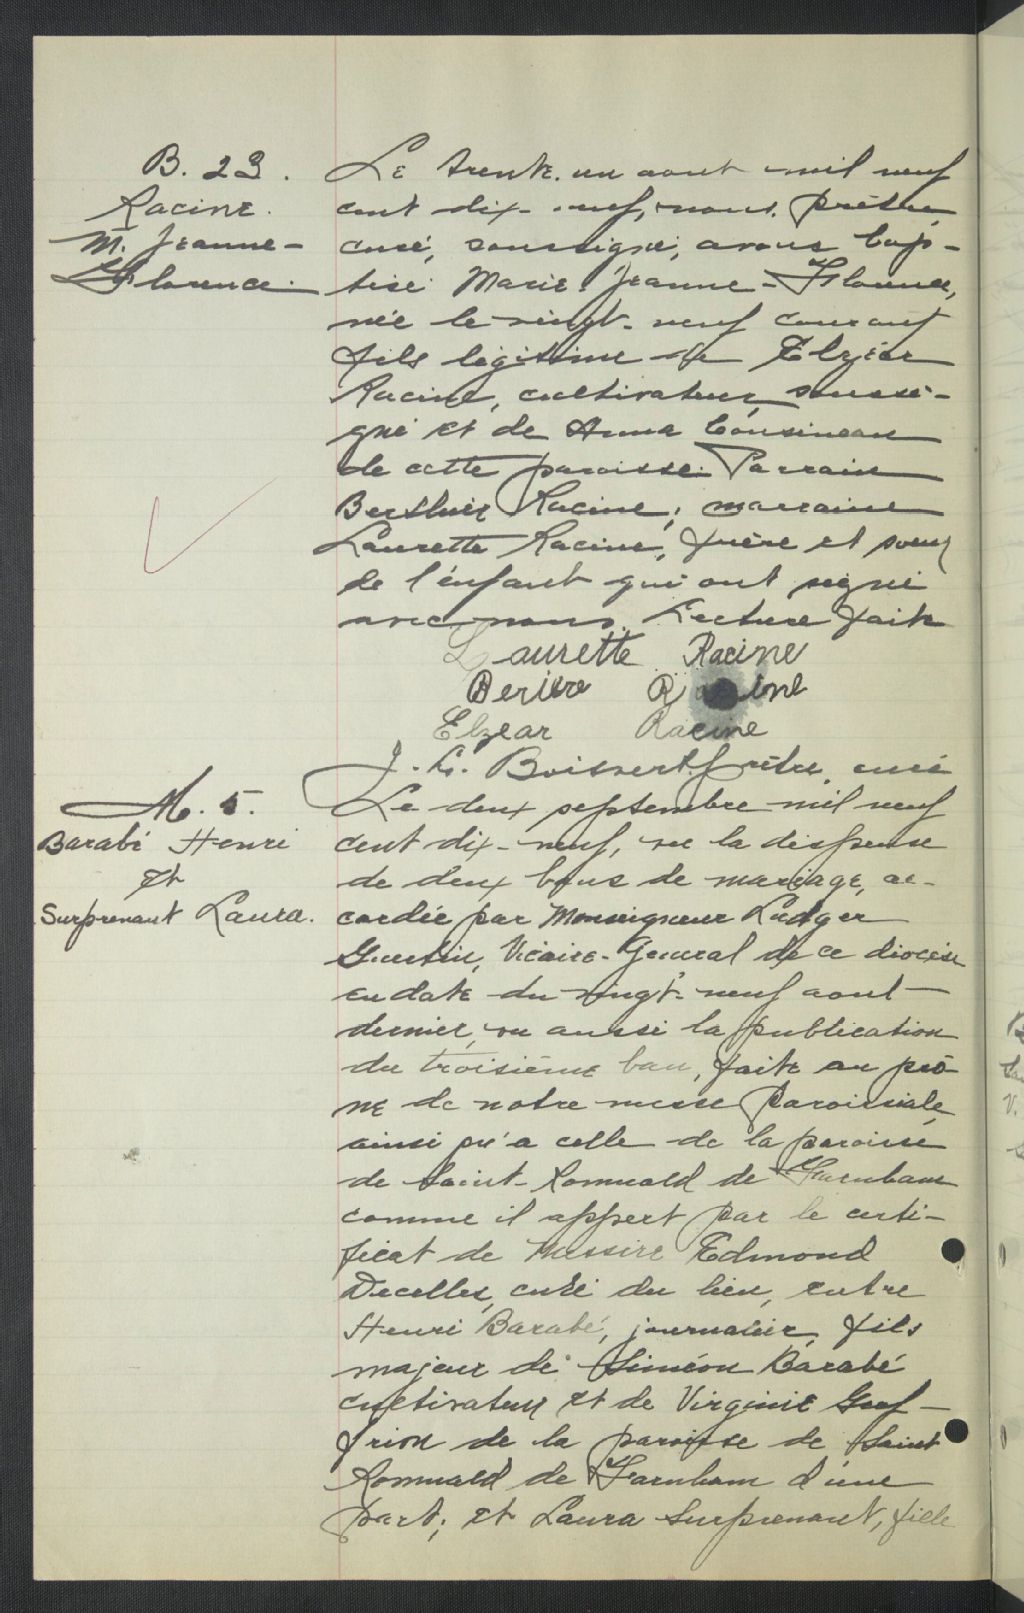 B. 23.
Racine.
M. Jeanne-
Florence.
Le trente-un aout mil neuf
cent dix-neuf, nous, prêtre,
curé, soussigné, avons bap-
tisé Marie Jeanne-Florence,
née le vingt-neuf courant
fils légitime de Elzéar
Racine, cultivateur, soussi-
gné et de Anna Cousineau
de cette paroisse. Parrain
Racine; marraine
Laurette Racine, frère et soeur
de l'enfant qui ont signé
avec nous. Lecture faite
Laurette Racine
Racine
Elzear Racine
J. L. Boisvert ptêtre, curé
M. 5.
Barabé Henri
et
Surprenant Laura.
Le deux septembre mil neuf
cent dix-neuf, vu la dispense
de deux bans de mariage, ac-
cordée par Monseigneur Ludger
Vicaire-Général de ce diocèse
en date du vingt-neuf aout
dernier, vu aussi la publication
du troisième ban, faite au prô-
ne de notre messe paroissiale,
ainsi qu'a celle de la paroisse
de Saint-Romuald de Farnham
comme il appert par le certi-
ficat de Messire Edmond
Decelles, curé du lieu, entre
Henri Barabé, journalier, fils
majeur de Siméon Barabé
cultivateur et de Virginie Geof-
frion de la paroisse de Saint
Romuald de Farnham d'une
part; et Laura Surprenant, fille